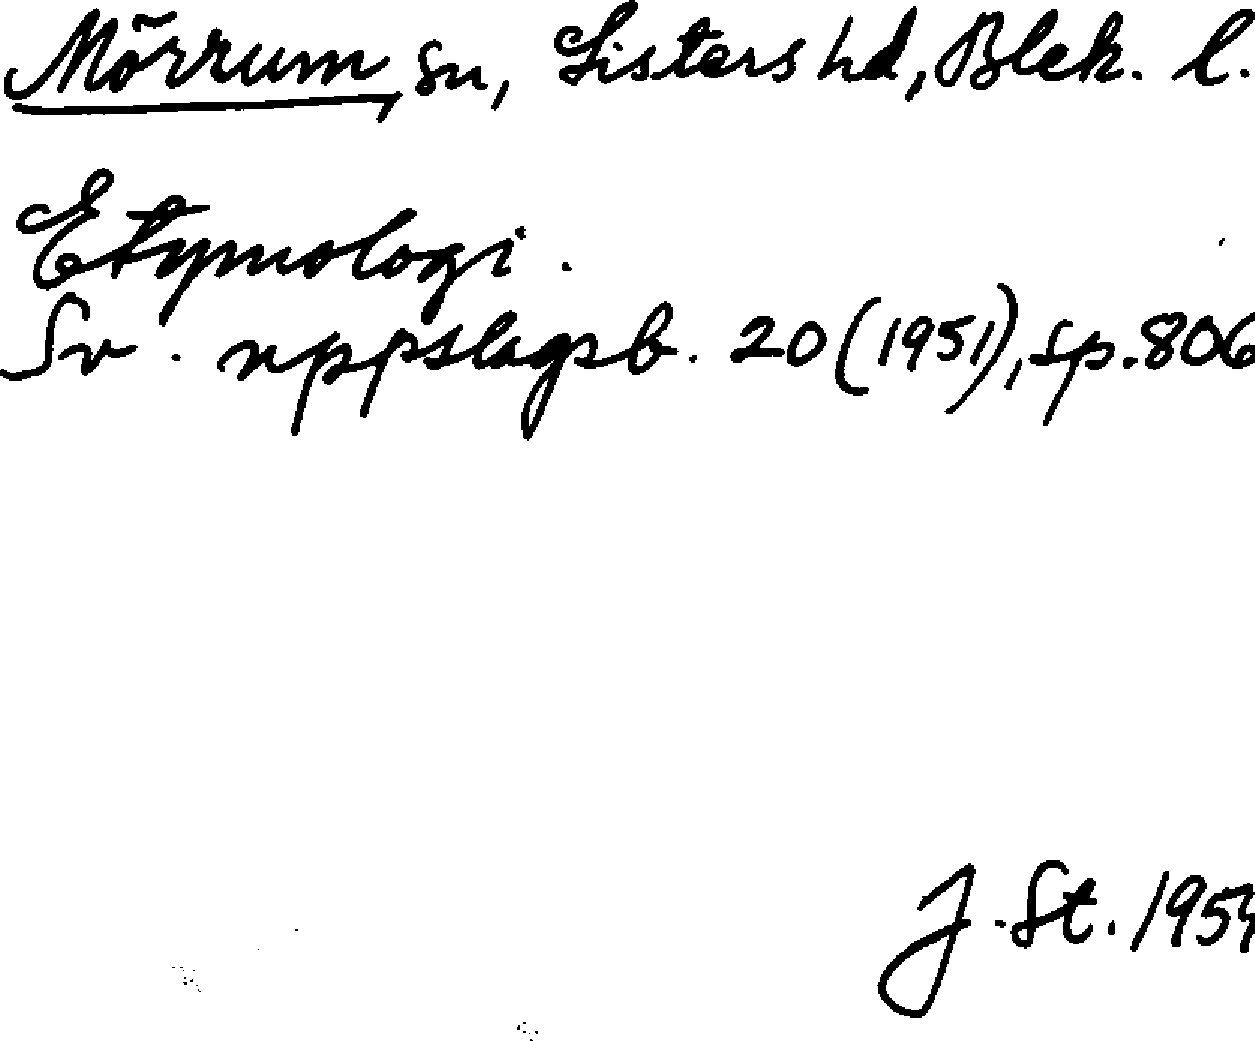 Mörrum, sn, Listers hd, Blek. l.
Etymologi.
Sv. uppslagsb. 20 (1951), sp. 806
J. St.